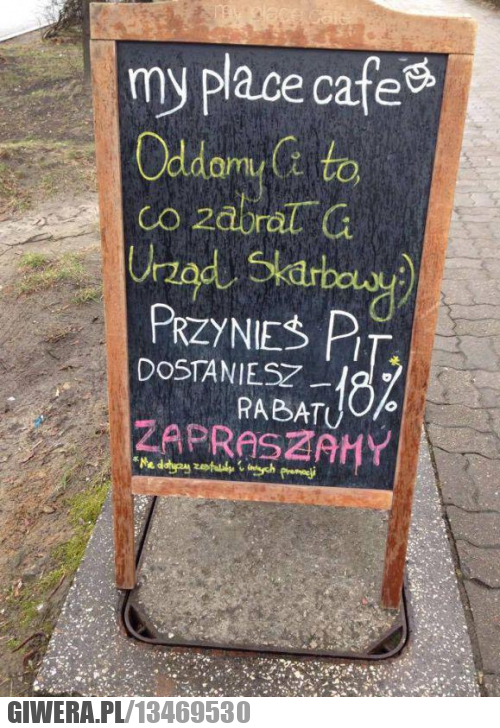 my place cafe
my place cafe
Oddamy Ci to,
co zabrał Ci
Urząd Skarbowy:)
PRZYNIEŚ PIT
DOSTANIESZ -18%*
RABATU
ZAPRASZAMY
*Nie dotyczy zestawów i innych promocji
GIWERA.PL/13469530